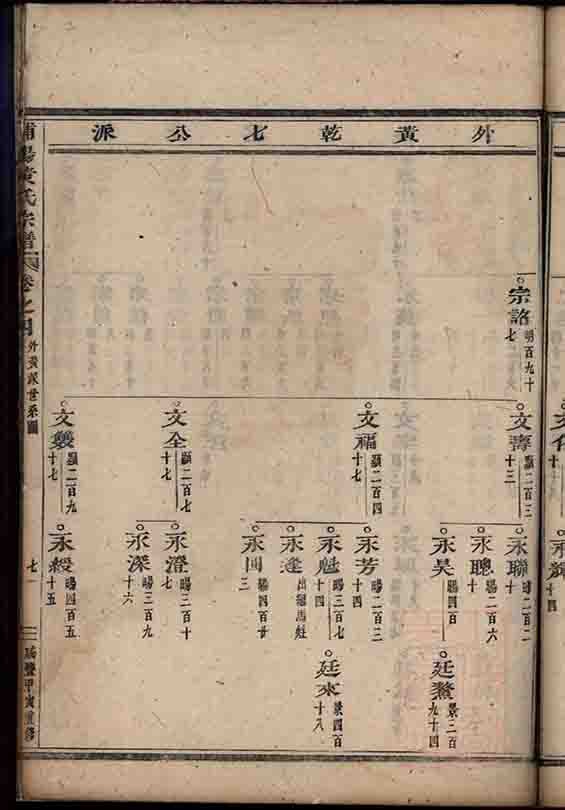 外黃乾七公派
宗諮
明百九十七
文壽
顯二百三十三
文福
顯二百四十七
文全
顯二百七十七
顯二百九十七
永聯
永聰
暘二百六十
永吴
暘四百
永芳
暘二百三十四
永魁
暘三百七十四
永逵
出繼馬姓
永回
暘四百廿三
永澄
暘二百十七
永深
暘三百九十六
永綬
暘四百五十五
廷鰲
景三百九十四
廷來
景四百十八
浦陽黃氏宗譜
卷之四
外黃派世系圖
七
咸豐甲寅重修